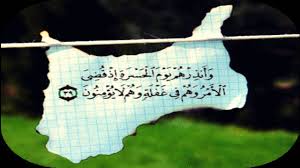 وَأَنذِرْهُمْ يَوْمَ الْحَسْرَةِ إِذْ قُضِيَ
الْأَمْرُ وَهُمْ فِي غَفْلَةٍ وَهُمْ لَا يُؤْمِنُونَ ﴿٣٩﴾